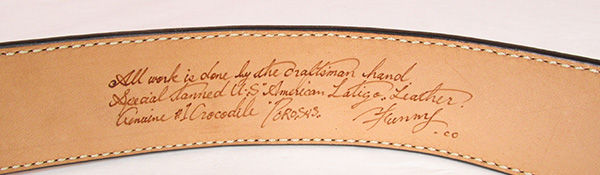 All work is done by the craftsman hand
Special tanned U.S "American Latigo" Leather.
Genuine #1 Crocodile "POROSUS". Funny
.co